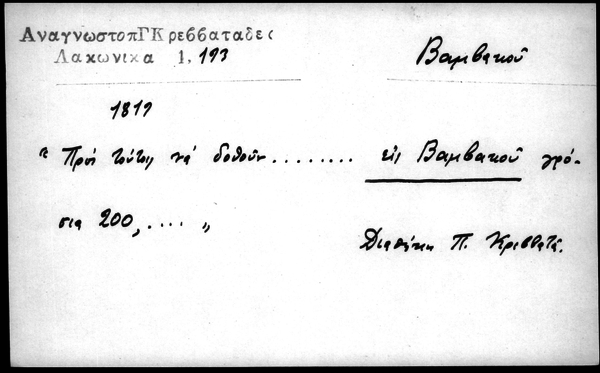 ΑναγνωστοπΓΚρεββαταδες
Λακωνικα 1, 193
Βαμβακοῦ
1819
" Πρός τούτοις νά δοθοῦν ........ εἰς Βαμβακοῦ γρό-
σια 200, .... "
Διαθήκη Π. Κρεββατᾶ.